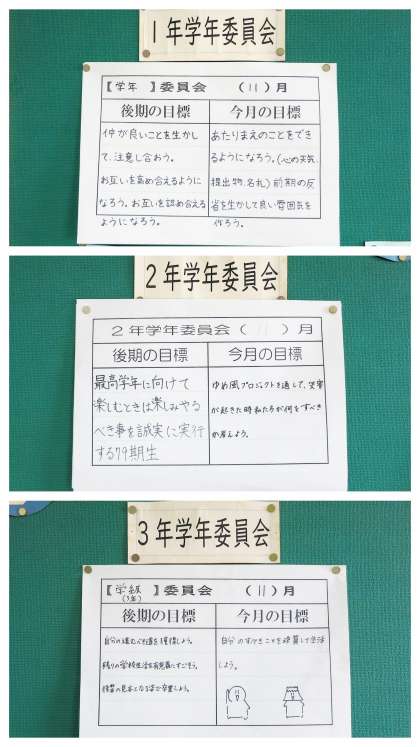 1年学年委員会
【学年】委員会 （11）月
後期の目標
仲が良いことを生かし
て、注意し合おう。
お互いを高め合えるように
なろう。お互いを認め合える
ようになろう。
今月の目標
あたりまえのことをでき
るようになろう。(心の天気、
提出物、名札)前期の反
省を生かして良い雰囲気を
作ろう。
2年学年委員会
2年学年委員会（11）月
後期の目標
最高学年に向けて
楽しむときは楽しみやる
べき事を誠実に実行
する79期生
今月の目標
ゆめ風プロジェクトを通して、災害
が起きた時私たちが何をすべき
か考えよう。
3年学年委員会
【学級】委員会 （11）月
(3年)
後期の目標
自分の進むべき道を獲得しよう。
残りの学校生活を有意義にすごそう。
後輩の見本となる姿で卒業しよう。
今月の目標
自分のすべきことを確実して生活
しよう。